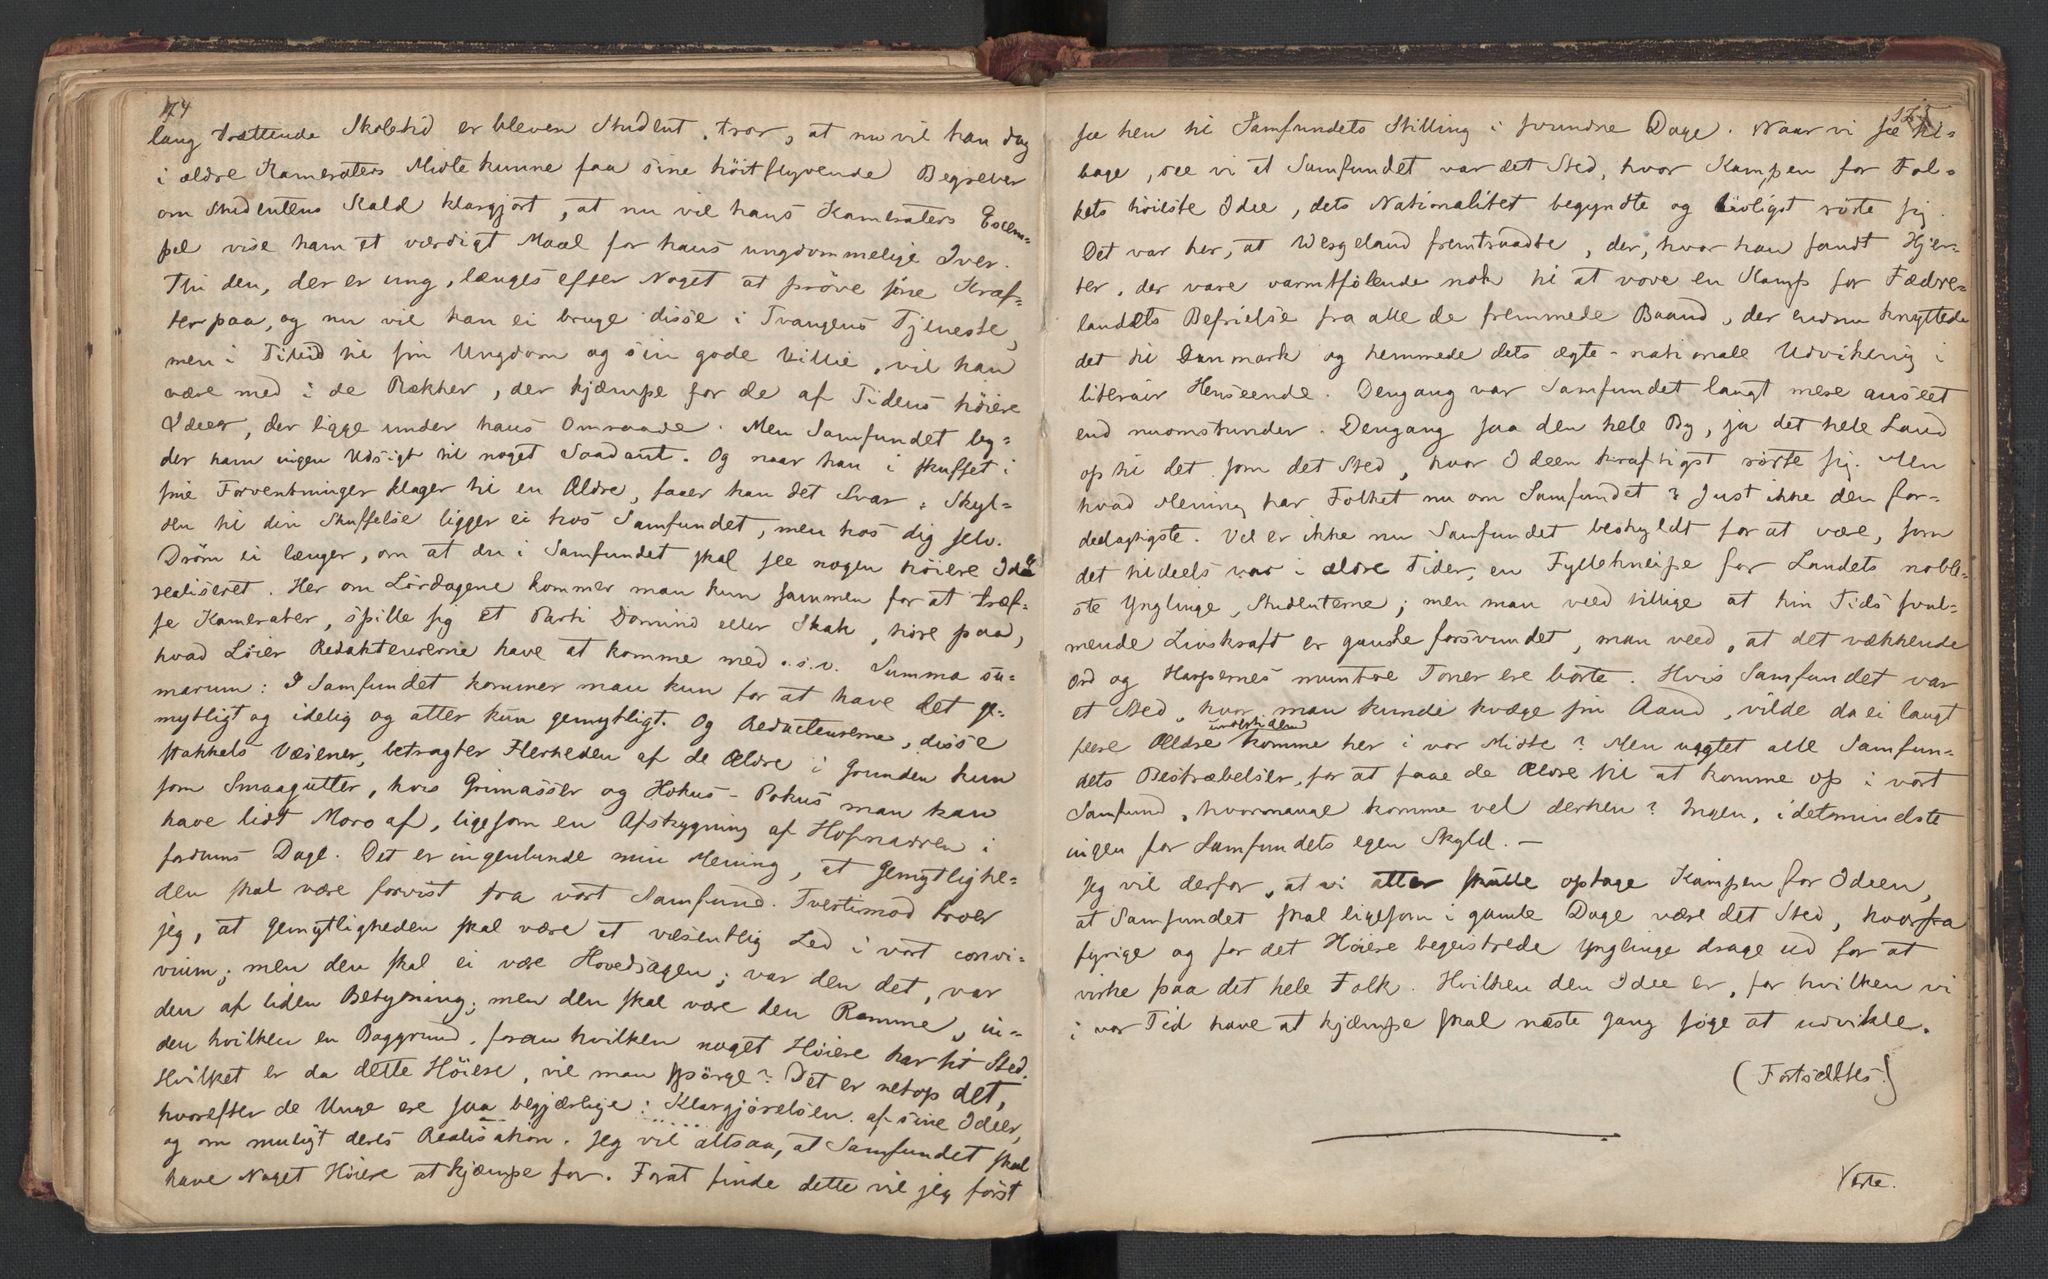 174
lang trættende Skoletid er bleven Student, tror, at nu vil han dog
i ældre Kameraters Midte kunne faa sine höitflyvende Begreber
om Studentens Kald klargjort, at nu vil hans Kameraters Exem-
pel vise ham et værdigt Maal for hans ungdommelige Iver.
Thi den, der er ung, længes efter Noget at pröve sine Kræf-
ter paa, og nu vil han ei bruge disse i Tvangens Tjeneste,
men i Tillid til sin Ungdom og sin gode Villie, vil han
være med i de Rækker, der kjæmpe for de af Tidens höiere
Ideer, der ligge under hans Omraade. Men Samfundet by-
der ham ingen Udsigt til noget Saadant. Og naar han i skuffet i
sine Forventninger klager til en Ældre, faaer han det Svar: Skyl-
den til din Skuffelse ligger ei hos Samfundet, men hos dig selv.
Dröm ei længer, om at du i Samfundet skal see nogen höiere Idee
realiseret. Her om Lördagene kommer man kun sammen for at træf-
fe Kamerater, spille sig et Parti Domino eller Skak, höre paa,
hvad Löier Redaktörerne have at komme med o.s.v. Summa su-
marum: I Samfundet kommer man kun for at have det ge-
mytligt og idelig og atter kun gemytligt. Og Redacteurerne, disse
stakkels Væsener, betragter Flerheden af de Ældre i Grunden kun
som Smaagutter, hvis Grimasser og Hokus-Pokus man kan
have lidt Moro af, ligesom en Afskygning af Hofnarren i
fordums Dage. Det er ingenlunde min Mening, at Gemytlighe-
den skal være forvist fra vort Samfund. Tvertimod troer
jeg, at Gemytligheden skal være et væsentlig Led i vort convi-
vium; men den skal ei være Hovedsagen; var den det, var
den af liden Betydning; men den skal være den Ramme, in-
den hvilken en Baggrund, foran hvilken noget Höiere har sit Sted.
Hvilket er da dette Höiere, vil man spörge? Det er netop det,
hvorefter de Unge ere saa begjærlige: Klargjörelsen af sine Ideer,
og om muligt deres Realisation. Jeg vil altsaa, at Samfundet skal
have Noget Höiere at kjæmpe for. Forat finde dette vil jeg först
175
se hen til Samfundets Stilling i svundne Dage. Naar vi se til-
bage, see vi at Samfundet var det Sted, hvor Kampen for Fol-
kets höieste Idee, dets Nationalitet begyndte og livligst rörte sig.
Det var her, at Wergeland fremtraadte, der, hvor han fandt Hjer-
ter, der vare varmtfölende nok til at vove en Kamp for Fædre-
landets Befrielse fra alle de fremmede Baand, der endnu knyttede
det til Danmark og hemmede dets ægte-nationale Udvikling i
literair Henseende. Dengang var Samfundet langt mere anseet
end nuomstunder. Dengang saa den hele By, ja det hele Land
op til det som det Sted, hvor Ideen kraftigst rörte sig. Men
hvad Mening har Folket nu om Samfundet? Just ikke den for-
delagtigste. Vel er ikke nu Samfundet beskyldt for at være, som
det tildeels var i ældre Tider, en Fyllekneipe for Landets noble-
ste Ynglinge, Studenterne; men man veed tillige at hin Tids svul-
mende Livskraft er ganske forsvundet, man veed, at det vækkende
Ord og Harpernes muntre Toner ere borte. Hvis Samfundet var
et Sted, hvor man kunde kvæge sin Aand, vilde da ei langt
flere Ældre undertiden komme her i vor Midte? Men uagtet alle Samfun-
dets Bestræbelser, for at faae de Ældre til at komme op i vort
Samfund, hvormange komme vel derhen? Ingen, i detmindste
ingen for Samfundets egen Skyld. —
Jeg vil derfor, at vi atter skulle optage Kampen for Ideen,
at Samfundet skal ligesom i gamle Dage være det Sted, hvorfra
fyrige og for det Höiere begeistrede Ynglinge drage ud for at
virke paa det hele Folk. Hvilken den Idee er, for hvilken vi
i vor Tid have at kjæmpe skal næste Gang söge at udvikle.
(Fortsættes.)